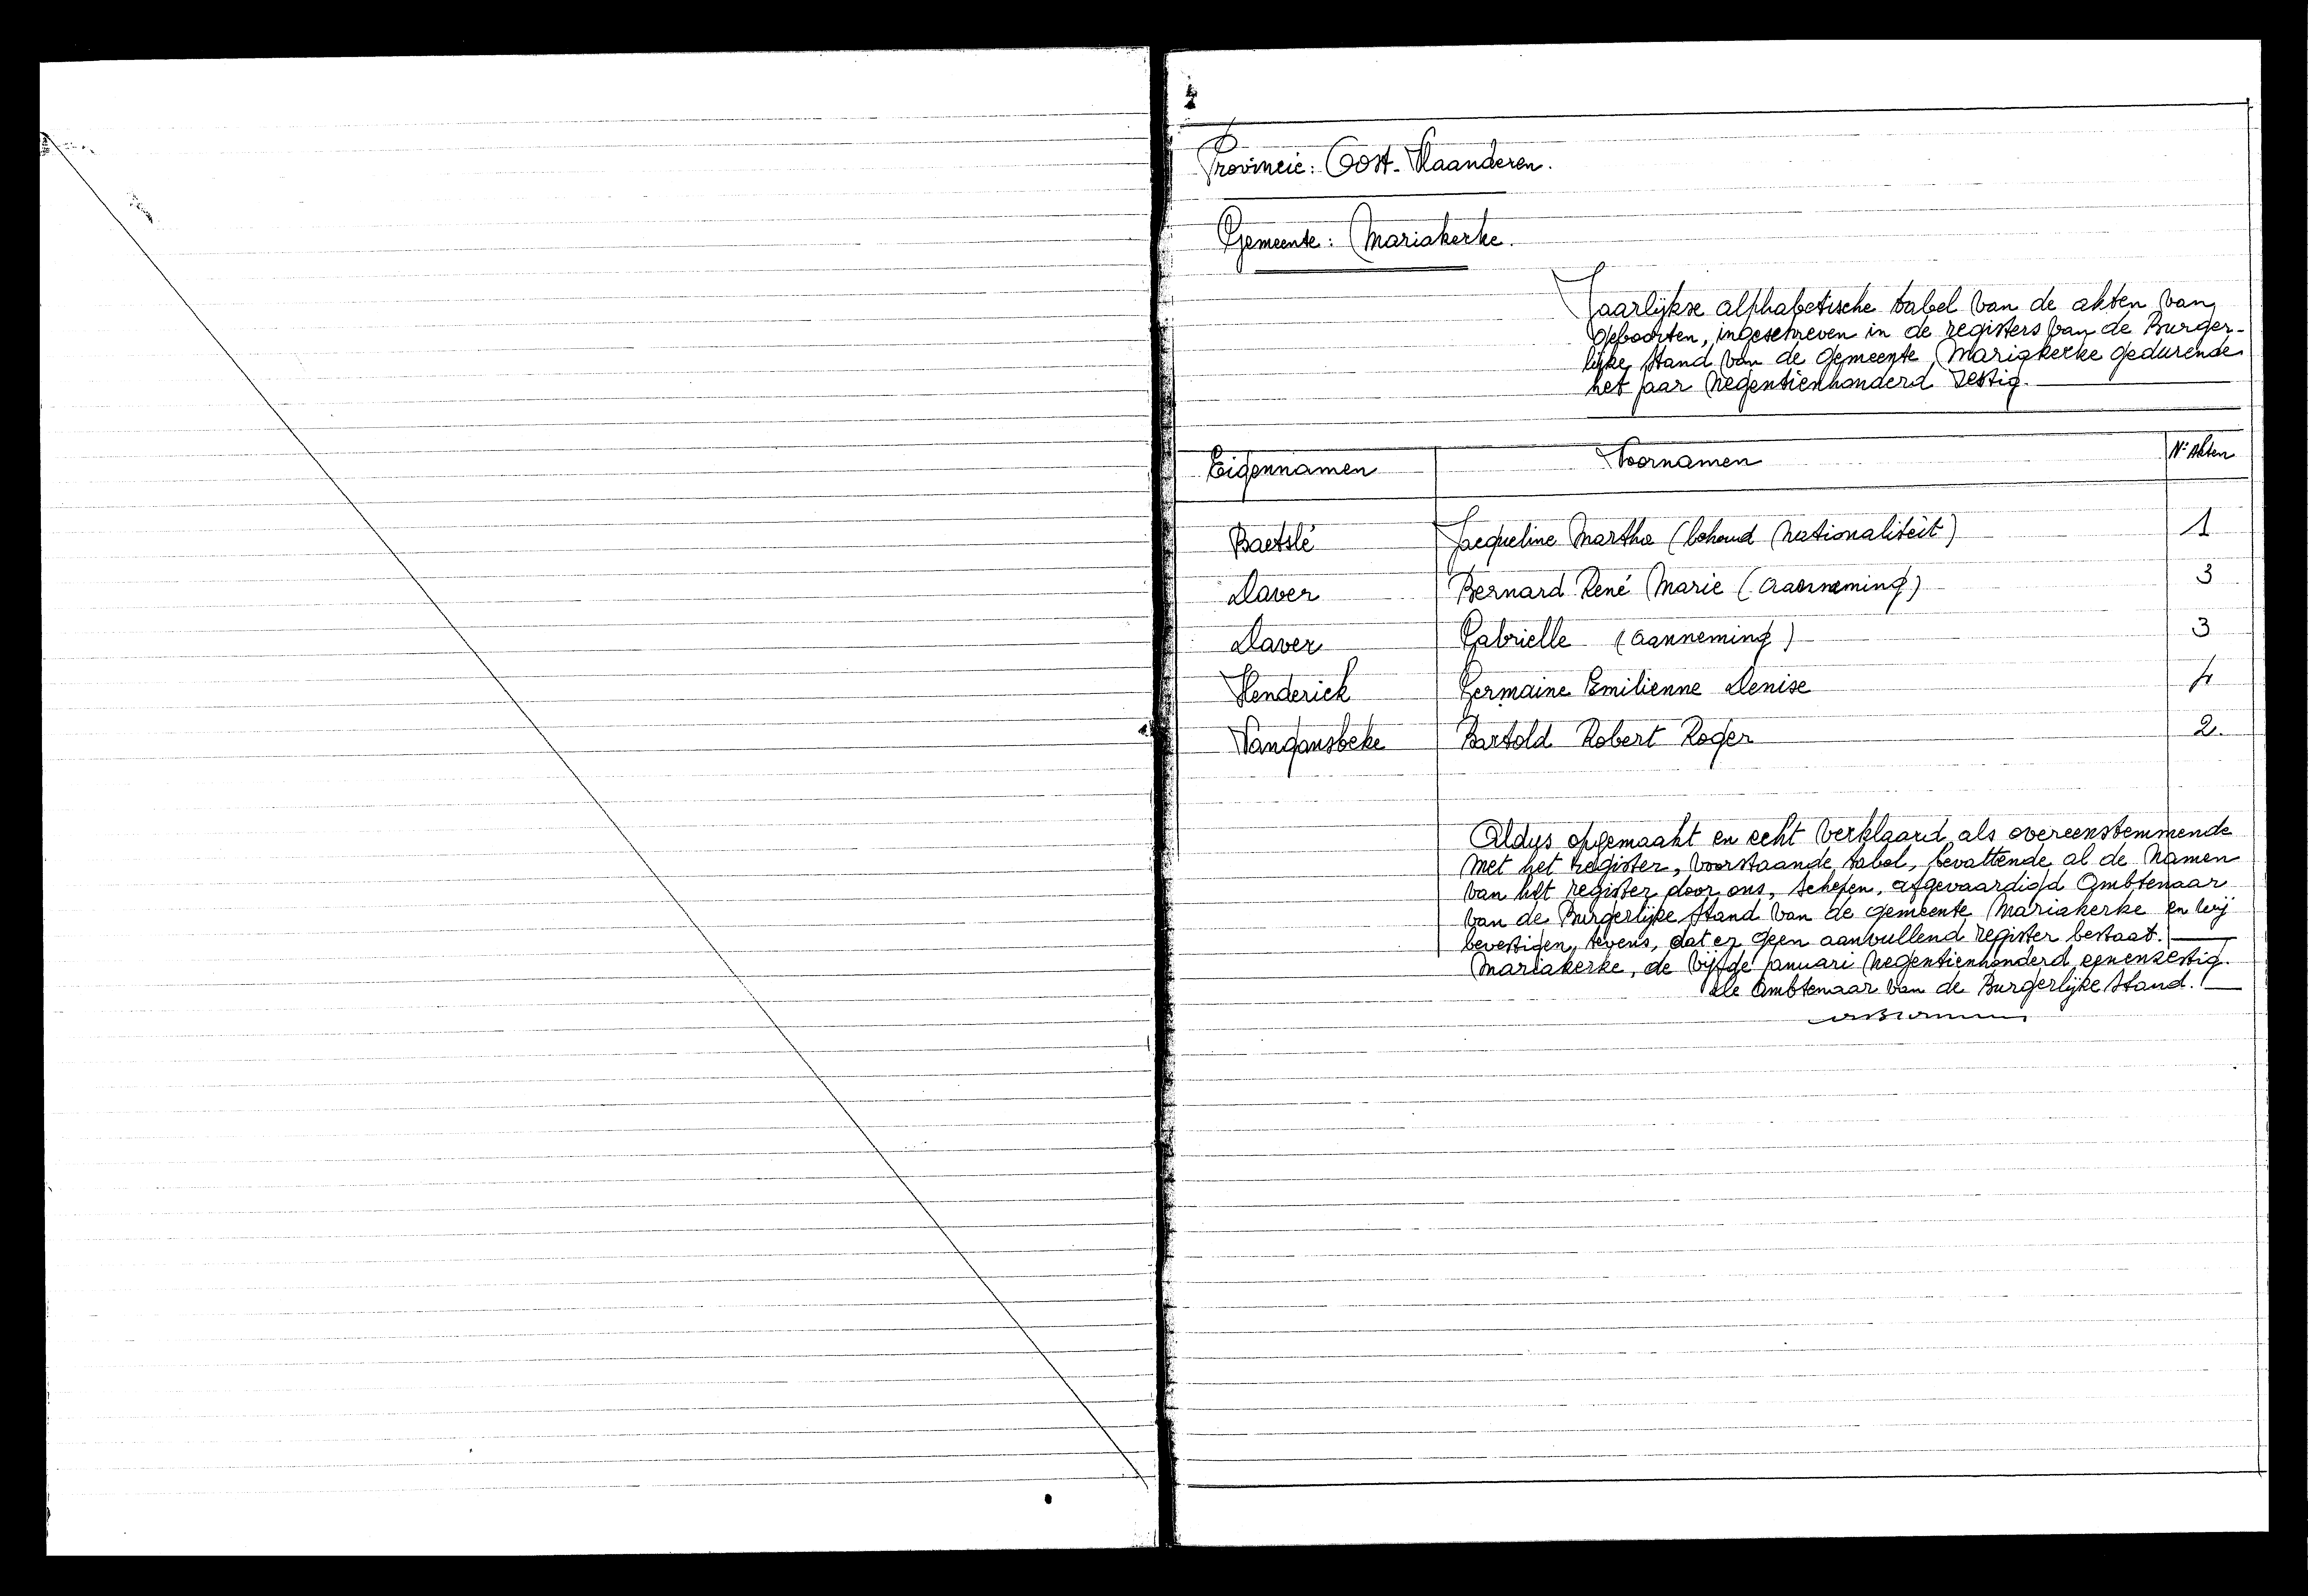 Provincie: Oost-Vlaanderen.
Gemeente: Mariakerke.
Jaarlijkse alphabetische tabel van de akten van
geboorten, ingeschreven in de registers van de Burger-
lijke stand van de gemeente Mariakerke gedurende
het jaar negentienhonderd zestig.
Eigennamen Voornamen Nr Akten
Baetslé Jacqueline Martha (behoud nationaliteit) 1
Daver Bernard René Marie (aanneming) 3
Daver Gabrielle (aanneming) 3
Henderick Germaine Emilienne Denise 4
Vangansbeke Bartold Robert Roger 2.
Aldus opgemaakt en echt verklaard, als overeenstemmende
met het register, voorstaande tabel, bevattende al de namen
van het register door ons, schepen, afgevaardigd Ambtenaar
van de Burgerlijke stand van de gemeente Mariakerke en wij
bevestigen, tevens, dat er geen aanvullend register bestaat.
Mariakerke, de vijfde januari negentienhonderd eenenzestig.
De Ambtenaar van de Burgerlijke stand.